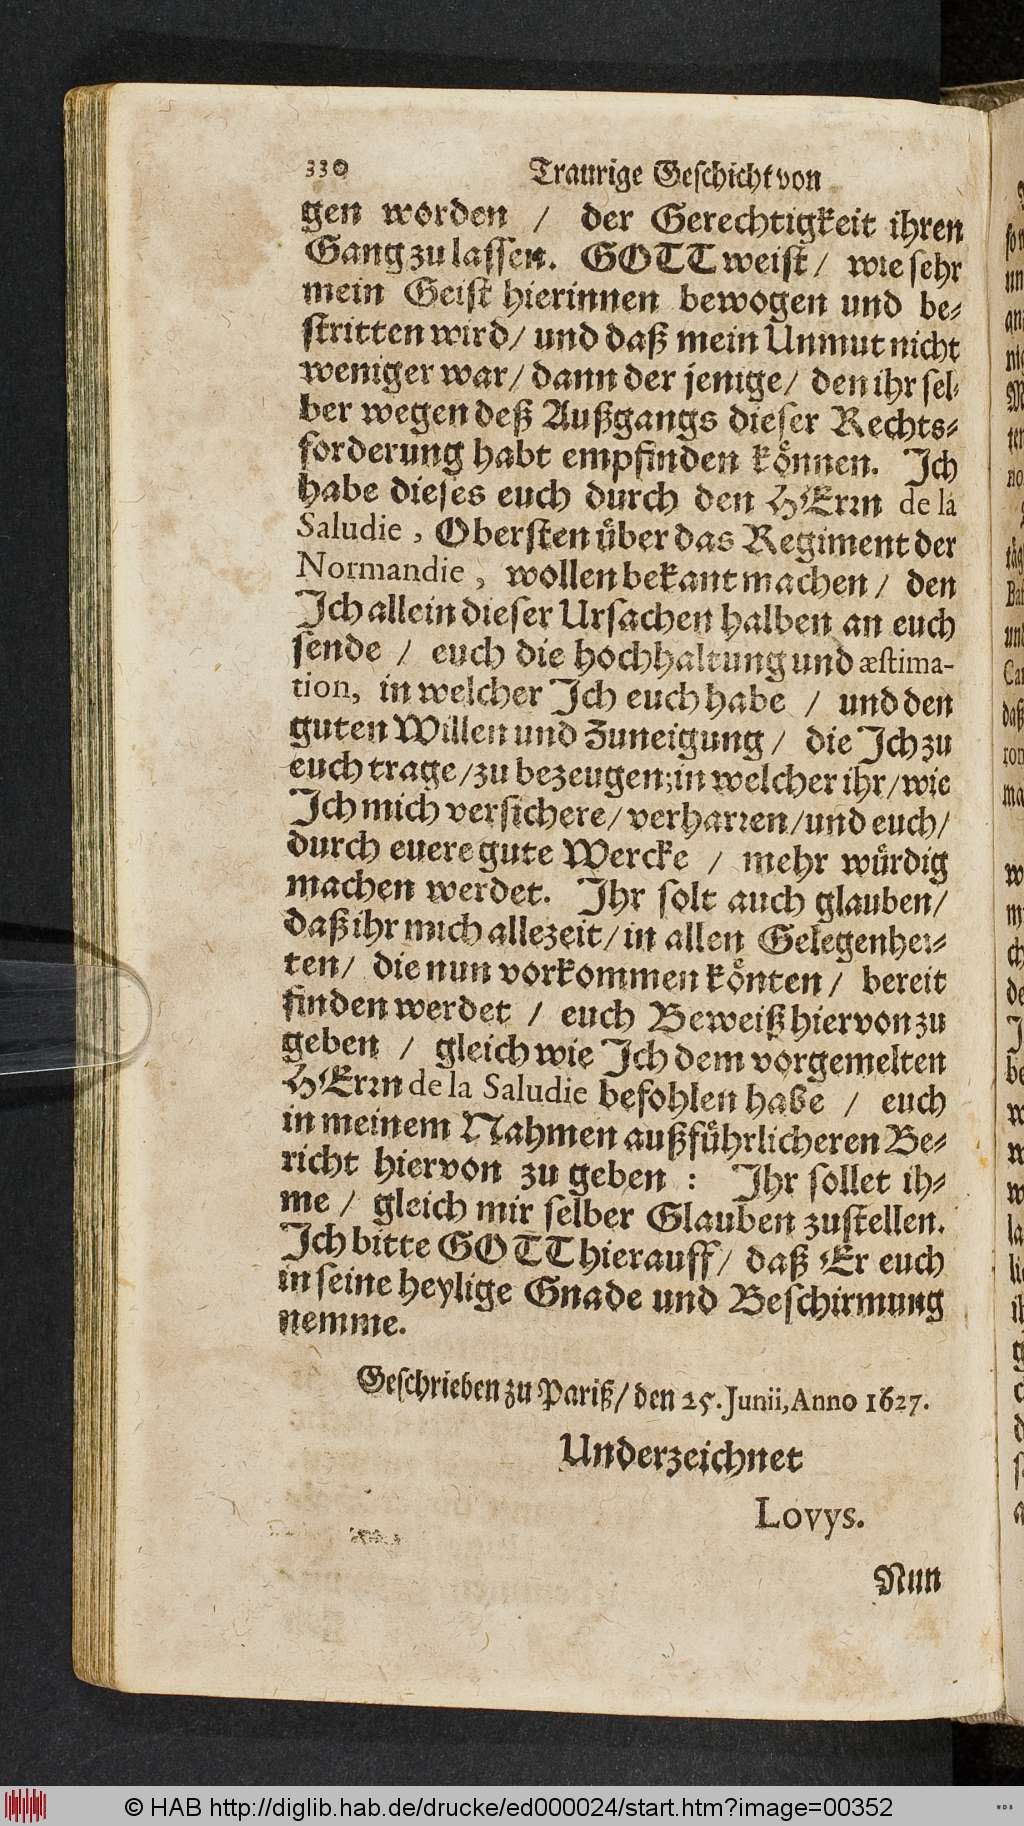 330 Traurige Geschicht von
gen worden / der Gerechtigkeit ihren
Gang zu lassen. GOTT weist / wie sehr
mein Geist hierinnen bewogen und be-
stritten wird / und daß mein Unmut nicht
weniger war / dann der jenige / den ihr sel-
ber wegen deß Außgangs dieser Rechts-
forderung habt empfinden koͤnnen. Ich
habe dieses euch durch den HErrn de la
Saludie, Obersten uͤber das Regiment der
Normandie, wollen bekant machen / den
Ich allein dieser Ursachen halben an euch
sende / euch die hochhaltung und æstima-
tion, in welcher Ich euch habe / und den
guten Willen und Zuneigung / die Ich zu
euch trage / zu bezeugen; in welcher ihr / wie
Ich mich versichere / verharren / und euch /
durch euere gute Wercke / mehr wuͤrdig
machen werdet. Ihr solt auch glauben /
daß ihr mich allezeit / in allen Gelegenhei-
ten / die nun vorkommen koͤnten / bereit
finden werdet / euch Beweiß hiervon zu
geben / gleich wie Ich dem vorgemelten
HErrn de la Saludie befohlen habe / euch
in meinem Nahmen außfuͤhrlicheren Be-
richt hiervon zu geben : Ihr sollet ih-
me / gleich mir selber Glauben zustellen.
Ich bitte GOTT hierauff / daß Er euch
in seine heylige Gnade und Beschirmung
nemme.
Geschrieben zu Pariß / den 25. Junii, Anno 1627.
Underzeichnet
Lovys.
Nun
© HAB http://diglib.hab.de/drucke/ed000024/start.htm?image=00352